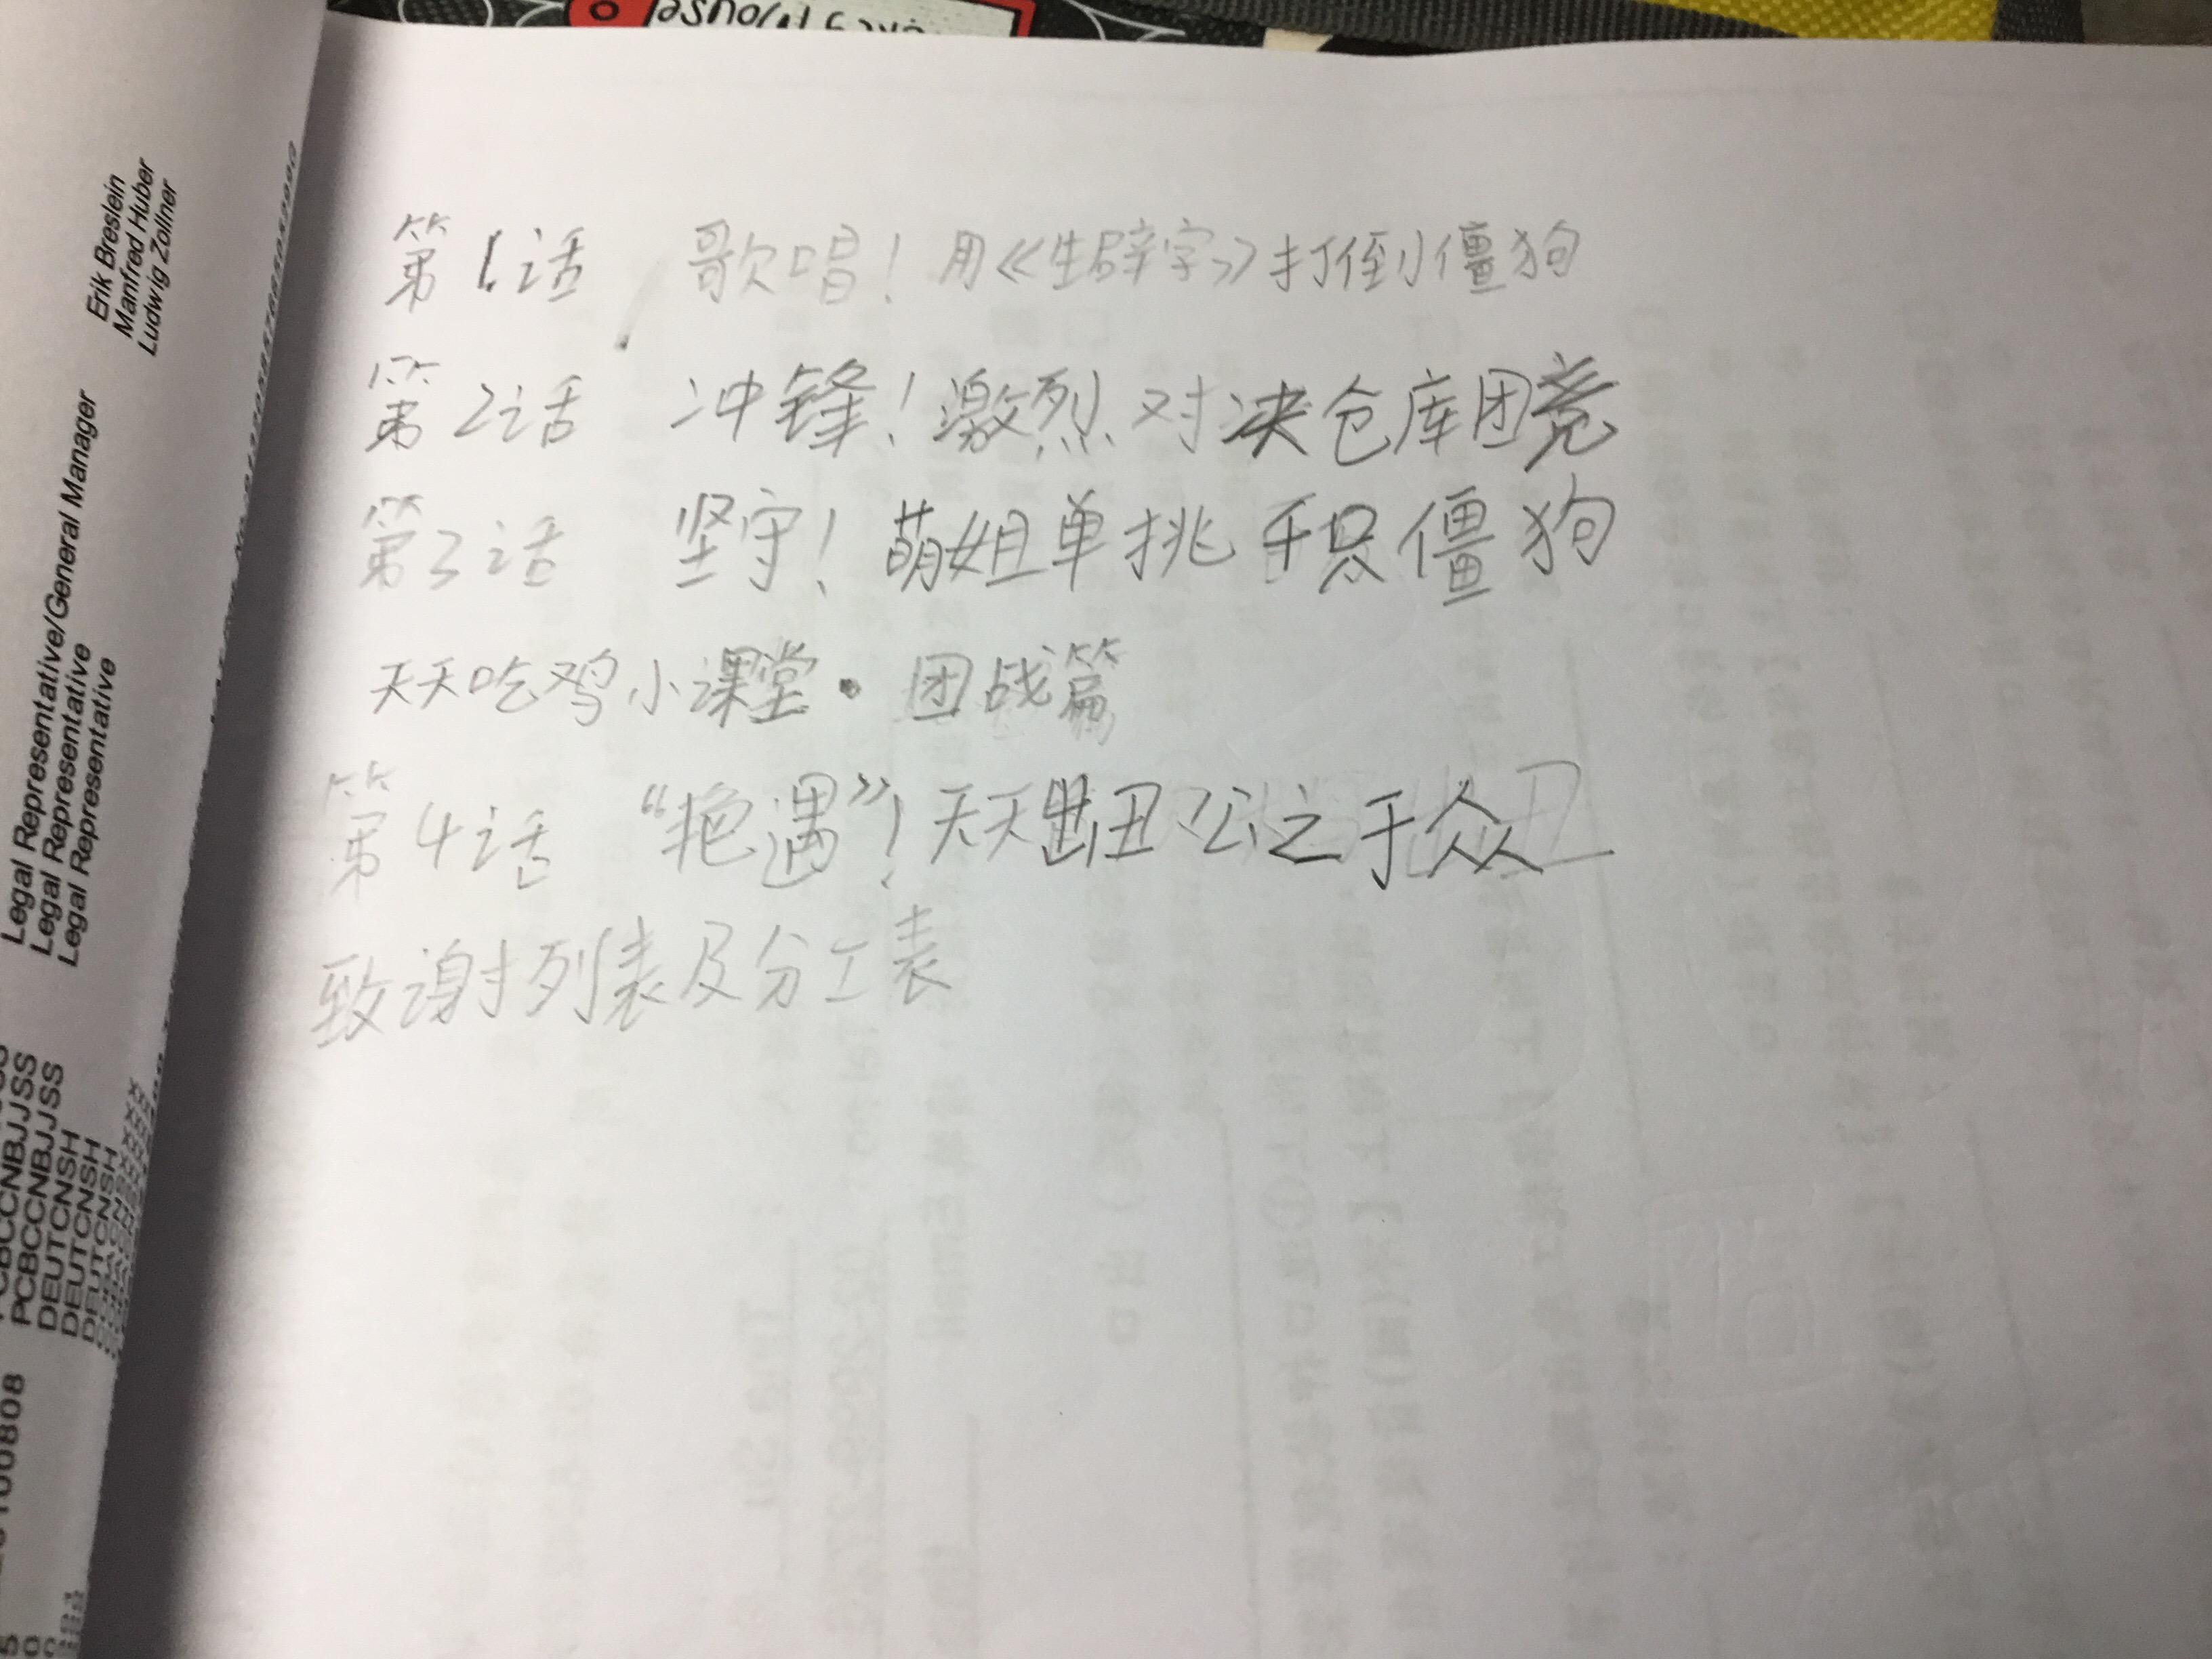 Mouse
Erik Breslein
Manfred Huber
Ludwig Zollner
Legal Representative/General Manager
Legal Representative
Legal Representative
PCBCCNBJJSS
PCBCCNBJJSS
DEUTCNSH
DEUTCNSH
DEUTCNSH
第1话 歌唱！用《生辟字》打倒小僵狗
第2话 冲锋！激烈对决仓库团竞
第3话 坚守！萌姐单挑千只僵狗
天天吃鸡小课堂·团战篇
第4话 “艳遇”！天天出丑公之于众
致谢列表及分工表